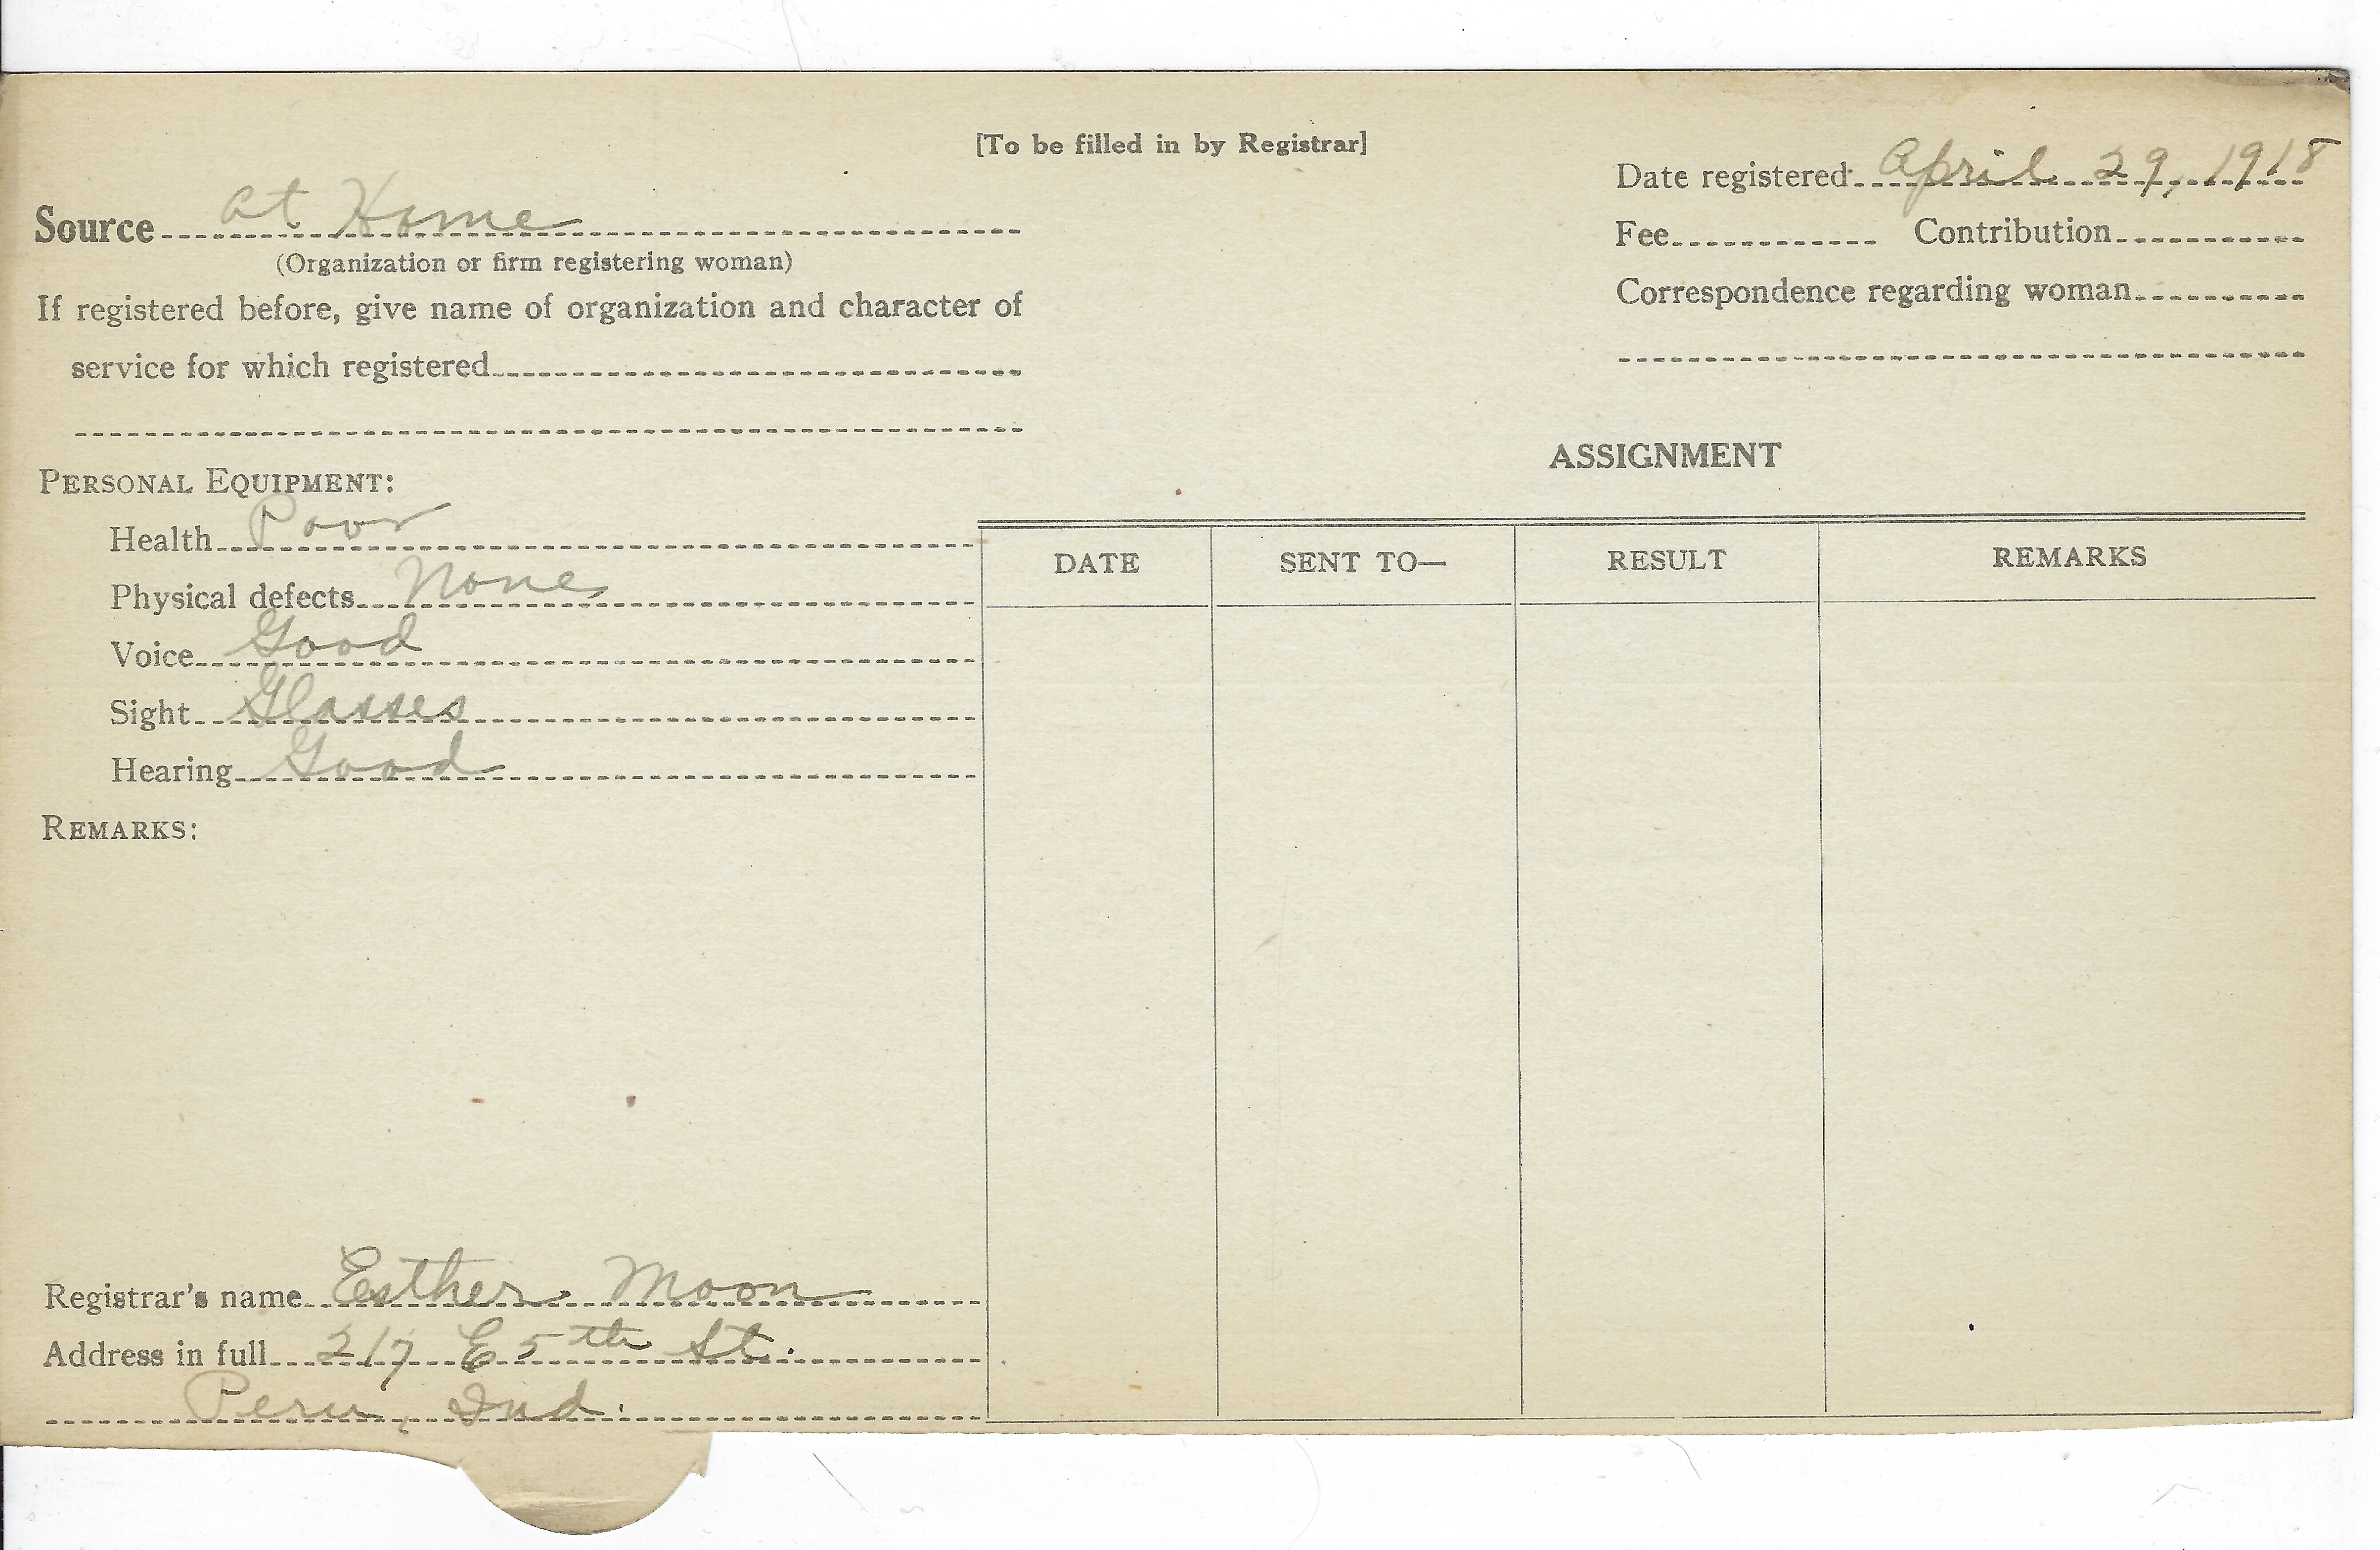 [To be filled in by Registrar]
Date registered April 29, 1918
Source at Home
(Organization or firm registering woman)
Fee Contribution
If registered before, give name of organization and character of
service for which registered
Correspondence regarding woman
PERSONAL EQUIPMENT:
Health Poor
Physical defects None
Voice Good
Sight Glasses
Hearing Good
REMARKS:
ASSIGNMENT
DATE SENT TO— RESULT REMARKS
Registrar's name Esther Moon
Address in full 217 E 5th St.
Peru, Ind.